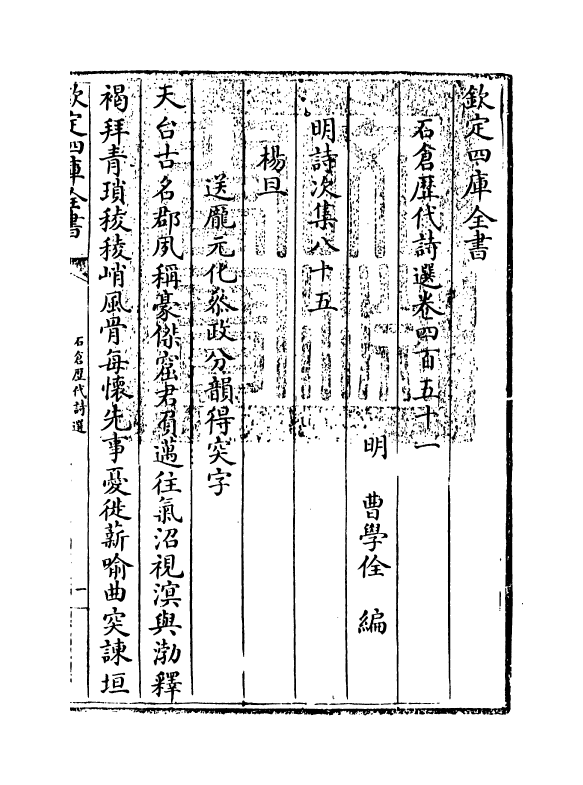 欽定四庫全書
石倉歷代詩選卷四百五十一
明 曹學佺 編
明詩次集八十五
楊旦
送龎元化叅政分韻得突字
天台古名郡夙稱豪傑窟君負邁往氣沼視溟與渤釋
褐拜青瑣稜稜峭風骨每懷先事憂徙薪喻曲突諫垣
欽定四庫全書
石倉歷代詩選
一